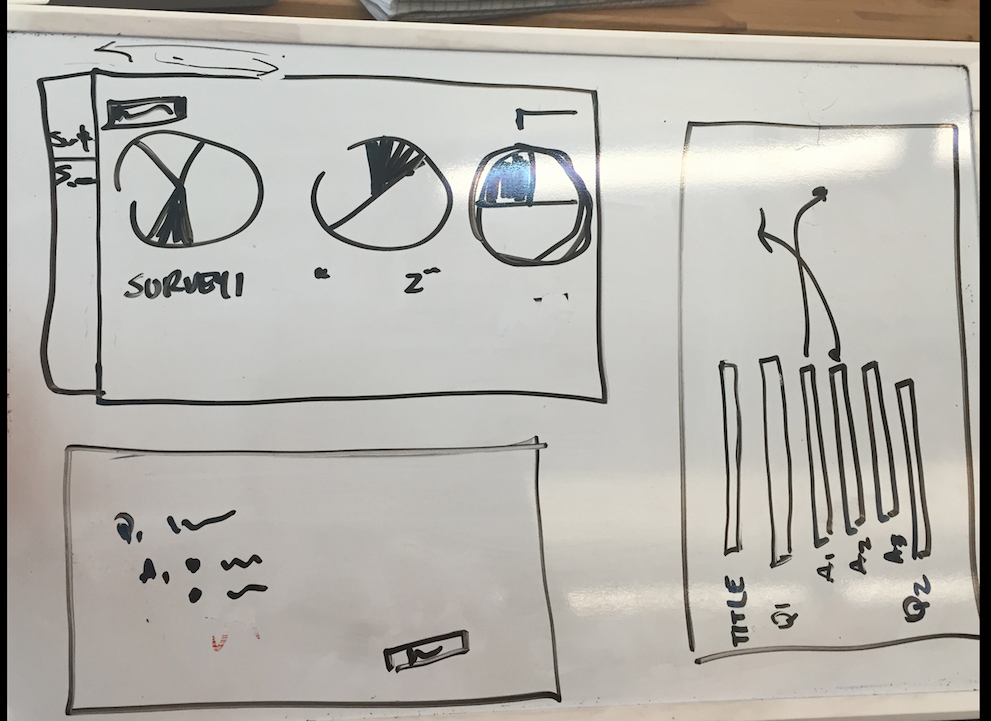 SURVEY1
" 2"
Q1
A1
TITLE
Q1
A1
A2
A3
Q2